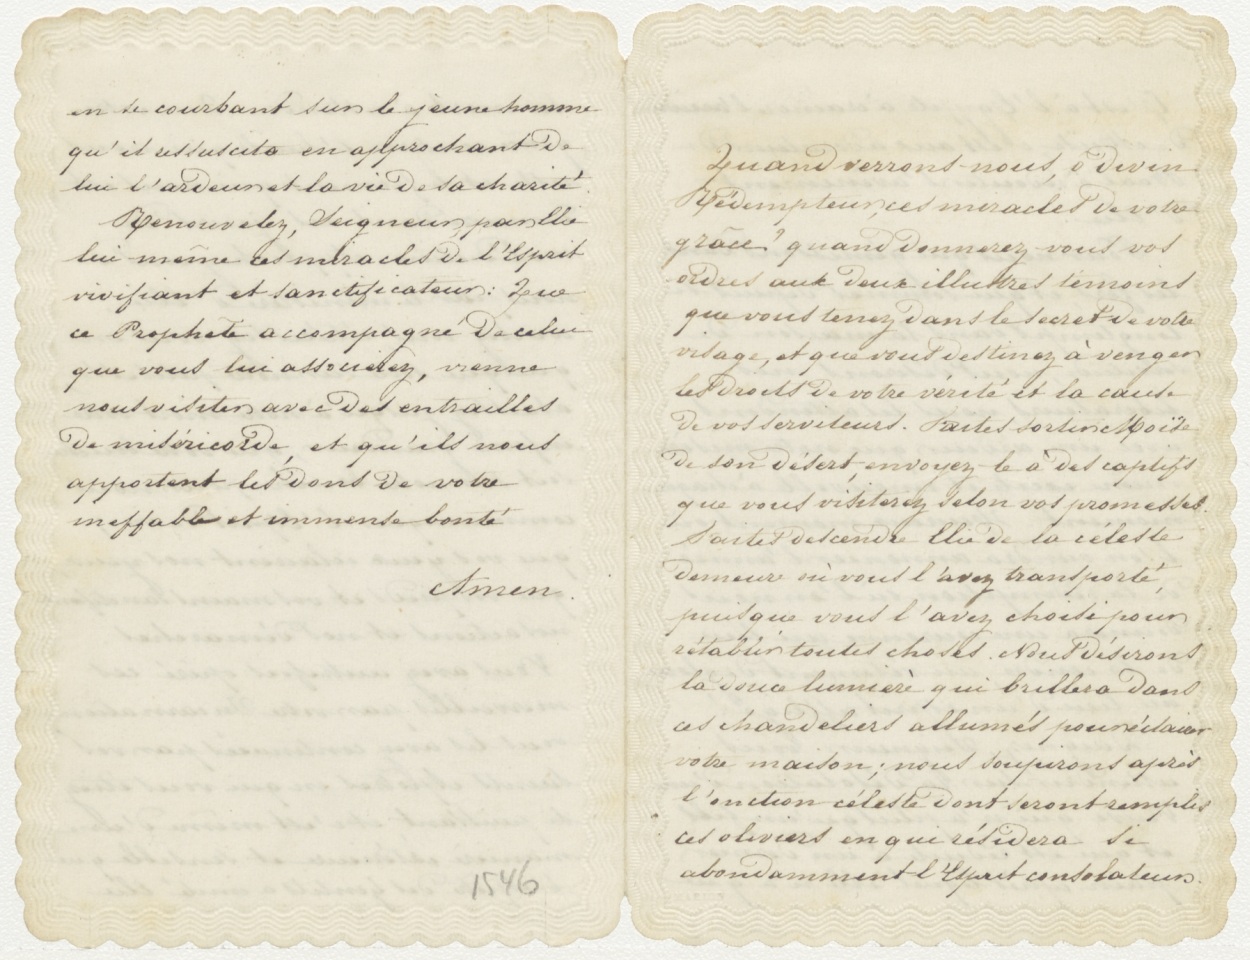 en se courbant sur le jeune homme
qu'il ressuscita en approchant de
lui l'ardeur et la vie de sa charité.
Renouvelez, Seigneur, par Elie
lui-même ces miracles de l'Esprit
vivifiant et sanctificateur: Que
ce Prophète accompagné de celui
que vous lui associerez, vienne
nous visiter avec des entrailles
de miséricorde, et qu'ils nous
apportent les dons de votre
ineffable et immense bonté
Amen.
1546
Quand verrons-nous, ô divin
Rédempteur, ces miracles de votre
grâce? quand donnerez-vous vos
ordres aux deux illustres témoins
que vous tenez dans le secret de votre
visage, et que vous destinez à venger
les droits de votre vérité et la cause
de vos serviteurs. Faites sortir Moïse
de son désert, envoyez-le à des captifs
que vous visiterez selon vos promesses.
Faites descendre Elie de la céleste
demeure où vous l'avez transporté,
puisque vous l'avez choisi pour
rétablir toutes choses. Nous désirons
la douce lumière qui brillera dans
ces chandeliers allumés pour éclairer
votre maison; nous soupirons après
l'onction céleste dont seront remplis
ces oliviers en qui résidera si
abondamment l'Esprit consolateur.